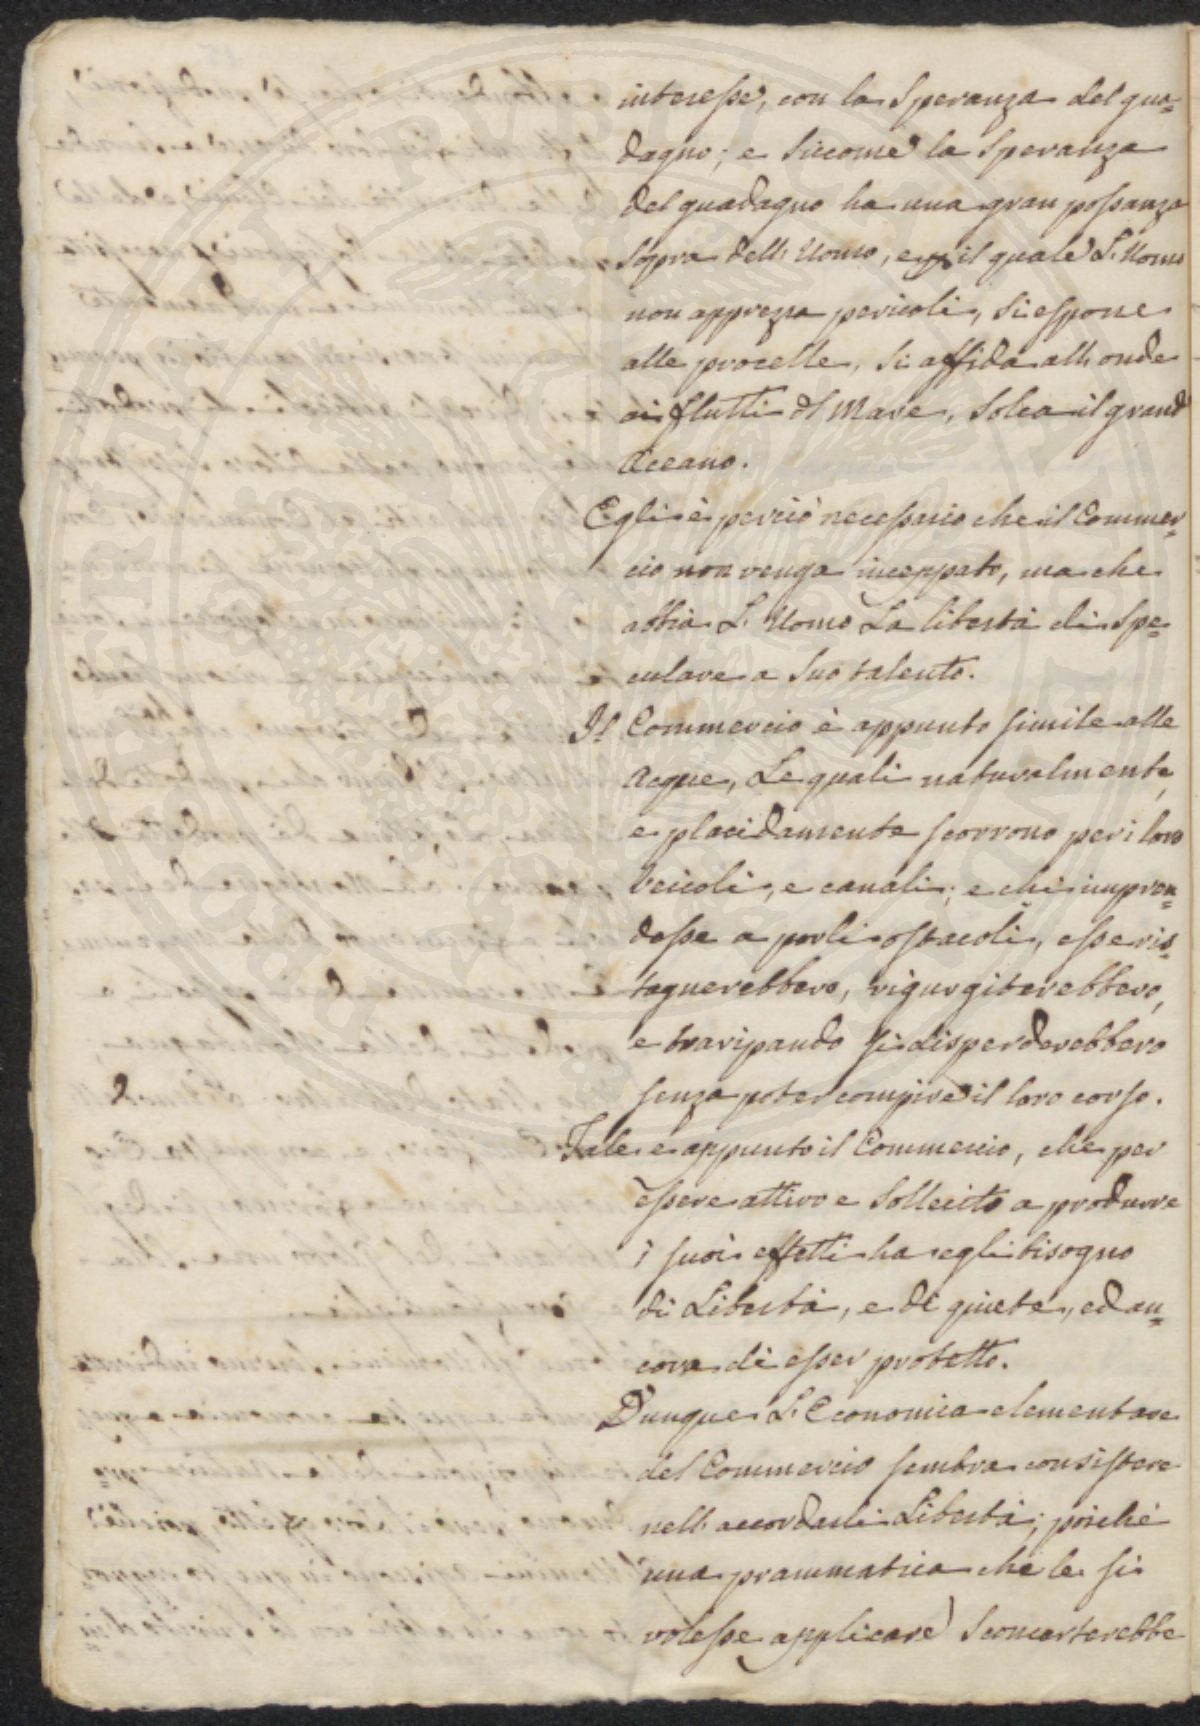 interesse, con la Speranza del gua=
dagno; e Siccome la Speranza
del guadagno ha una gran possanza
Sopra dell'Uomo, e il quale L'Uomo
non apprezza pericoli, Si espone
alle procelle, Si affida all'onde
ai flutti del Mare, Solca il grand
Oceano.
Egli è perciò necessario che il Commer=
cio non venga inceppato, ma che
abbia L'Uomo La libertà di Spe=
culare a Suo talento.
Il Commercio è appunto simile alle
Acque, Le quali naturalmente,
e placidamente scorrono per i loro
Veicoli, e canali; e chi impren=
desse a porli ostacoli, esse ris=
tagnerebbero, rigurgiterebbero,
e straripando si disperderebbero
senza poter compire il loro corso.
Tale e appunto il Commercio, che per
essere attivo e Sollecito a produrre
i suoi effetti ha egli bisogno
di Libertà, e di quiete, ed an=
cora di esser protetto.
Dunque L'Economia elementare
del Commercio sembra consistere
nell'accordarli Libertà; poiché
una prammatica che le si
volesse applicare Sconcerterebbe